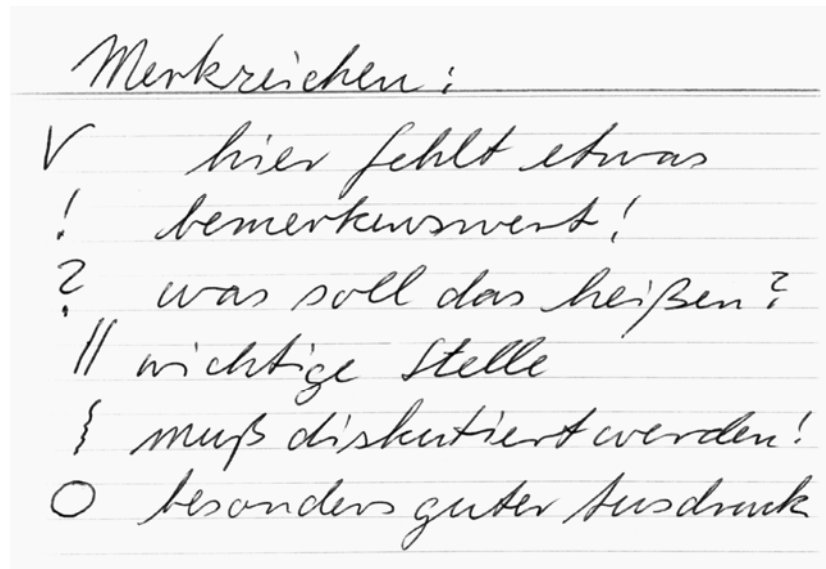 Merkzeichen:
V hier fehlt etwas
! bemerkenswert!
? was soll das heißen?
|| wichtige Stelle
} muß diskutiert werden!
O besonders guter Ausdruck